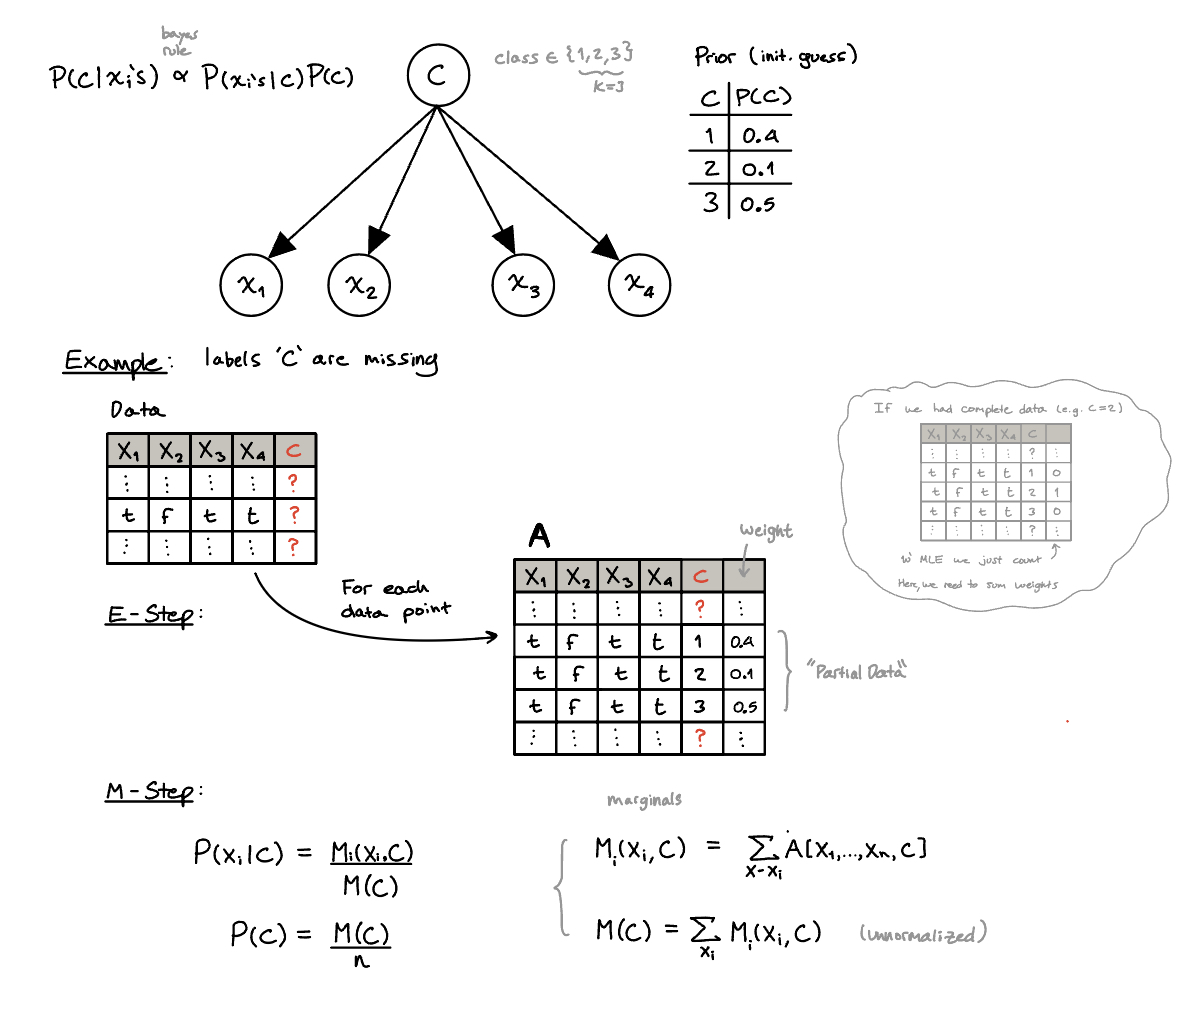 bayes
rule
P(C|xi's) ∝ P(xi's|C)P(C)
C
class ∈ {1,2,3}
K=3
Prior (init. guess)
C P(C)
1 0.4
2 0.1
3 0.5
X1 X2 X3 X4
Example: labels 'C' are missing
Data
X1 X2 X3 X4 C
⋮ ⋮ ⋮ ⋮ ?
t f t t ?
⋮ ⋮ ⋮ ⋮ ?
If we had complete data (e.g. C=2)
X1 X2 X3 X4 C
⋮ ⋮ ⋮ ⋮ ? ⋮
t f t t 1 0
t f t t 2 1
t f t t 3 0
⋮ ⋮ ⋮ ⋮ ? ⋮
w/ MLE we just count
Here, we need to sum weights
E-Step:
For each
data point
A
weight
X1 X2 X3 X4 C
⋮ ⋮ ⋮ ⋮ ? ⋮
t f t t 1 0.4
t f t t 2 0.1
t f t t 3 0.5
⋮ ⋮ ⋮ ⋮ ? ⋮
"Partial Data"
M-Step:
marginals
P(xi|C) = Mi(xi,C) / M(C)
Mi(xi,C) = ∑x-xi A[x1,...,xn,C]
P(C) = M(C) / n
M(C) = ∑xi Mi(xi,C) (unnormalized)